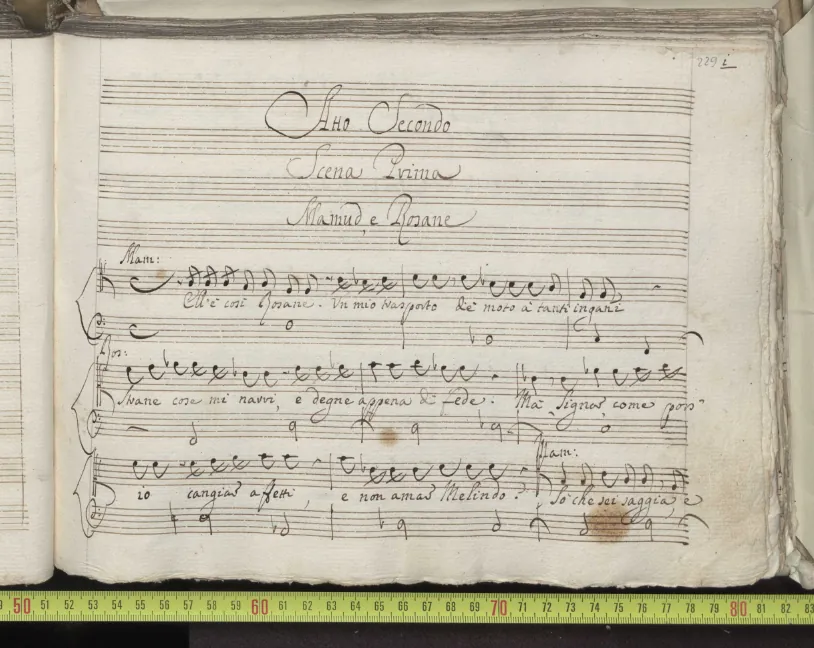 229 i
Atto Secondo
Scena Prima
Mamud, e Rosane
Mam:
Ell'è così Rosane. Un mio trasporto diè moto à tanti ingani
Ros:
Strane cose mi narri, e degne appena di fede. Mà Signor, come poss'
Mam:
io cangiar affetti, e non amar Melindo? Sò che sei saggia, e
50 51 52 53 54 55 56 57 58 59 60 61 62 63 64 65 66 67 68 69 70 71 72 73 74 75 76 77 78 79 80 81 82 83